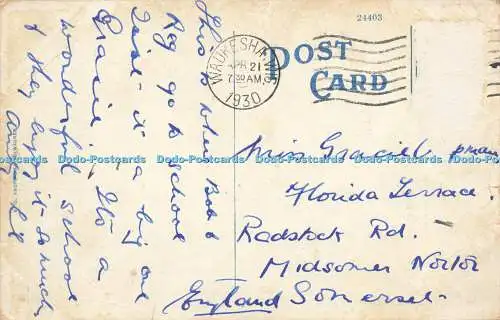 This is where Bob &
Reg go to school
Isnt it a big one
Gracie. Its a
wonderful school
& they enjoy it so much
24403
POST
CARD
WAUKESHA, WIS.
APR 21
7 30 AM
1930
Miss Gracie
Florida Terrace.
Radstock Rd.
Midsomer Norton
England Somerset
Dodo-Postcards Dodo-Postcards Dodo-Postcards Dodo-Postcards Dodo-Postcards Dodo-Postcards